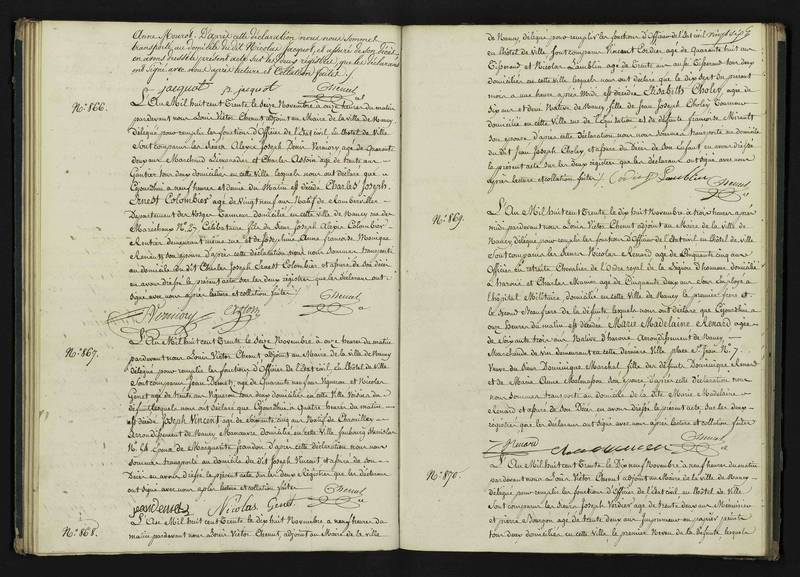 Anne Mourot. D'après cette déclaration nous nous sommes
transporté au domicile du dit Nicolas Jacquot, et assuré de son décès
en avons dressé le présent acte sur les deux registres que les déclarans
ont signé avec nous après lecture et collation faites /.
jacquot jacquot Chenut
N.° 866.
L'An Mil huit cent Trente le Seize Novembre à onze heures du matin
pardevant nous Louis Victor Chenut adjoint au Maire de la Ville de Nancy
délégué pour remplir les fonctions d'Officier de l'état civil en l'hôtel de Ville
Sont comparus les Sieurs Alexis Joseph agé de Quarante
deux ans Marchand et Charles agé de trente ans
Gantier tous deux domiciliés en cette Ville lesquels nous ont déclaré que
Cejourdhui à neuf heures et demie du Matin est décédé Charles Joseph
Ernest Colombier agé de Vingt neuf ans Natif de Rambervillers
Département des Vosges Tanneur domicilié en cette Ville de Nancy rue des
Maréchaux N.° 27 Célibataire fils de Sieur Joseph Alexis Colombier
Rentier demeurant même rue et de Joséphine Anne françoise Monique
son épouse d'après cette déclaration nous nous sommes transporté
au domicile du dit Charles Joseph Ernest Colombier et assuré de son décès
en avons dressé le présent acte sur les deux registres que les déclarans ont
Signé avec nous après lecture et collation faites /
Chenut
N.° 867.
L'An Mil huit cent Trente le Seize Novembre à onze heures du matin
pardevant nous Louis Victor Chenut adjoint au Maire de la Ville de Nancy
délégué pour remplir les fonctions d'Officier de l'état civil en l'hôtel de Ville
Sont comparus Jean agé de Quarante neuf ans Vigneron et Nicolas
Genet agé de trente six ans Vigneron tous deux domiciliés en cette Ville Voisins du
défunt lesquels nous ont déclaré que Cejourdhui à Quatre heures du matin
est décédé Joseph Vincent agé de Soixante cinq ans Natif de
arrondissement de Nancy, Manoeuvre domicilié en cette Ville faubourg Stanislas
N.° 64 Epoux de Marguerite jeandon d'après cette déclaration nous nous
sommes transporté au domicile du dit Joseph Vincent et assuré de son
Décès en avons dressé le présent acte sur les deux Registres que les déclarans
ont signé avec nous après lecture et collation faites
Nicolas Genet Chenut
N.° 868.
L'An Mil huit cent Trente le dix huit Novembre à neuf heures du
matin pardevant nous Louis Victor Chenut, adjoint au Maire de la ville
de Nancy, délégué pour remplir les fonctions d'Officier de l'état civil
en l'hôtel de Ville sont comparus Vincent Cordier agé de Quarante huit ans
Tisserand et Nicolas Lamblin agé de Trente un ans aussi Tisserand tous deux
domiciliés en cette ville lesquels nous ont déclaré que le dix sept du présent
mois à une heure après Midi est décédée Elisabeth Choley agée de
Six ans et demi Native de Nancy fille de Jean Joseph Choley Tourneur
domicilié en cette Ville rue de l'Equitation et de défunte françoise Mirault
Son épouse d'après cette déclaration nous nous sommes transporté au domicile
du dit Jean Joseph Choley et assuré du décès de Son Enfant en avons dressé
le présent acte sur les deux registres que les déclarans ont signé avec nous
après lecture et collation faites / Cordier Lamblin Chenut
N.° 869.
L'An Mil huit cent Trente le dix huit Novembre à trois heures après
midi pardevant nous Louis Victor Chenut adjoint au Maire de la Ville de
Nancy délégué pour remplir les fonctions d'Officier de l'état civil en l'hôtel de Ville
Sont comparus les Sieurs Nicolas Renard agé de Cinquante cinq ans
Officier en retraite Chevalier de l'Ordre royal de la Légion d'honneur domicilié
à Haroué et Charles agé de Cinquante deux ans Employé à
l'hôpital Militaire domicilié en cette Ville de Nancy le premier frère et
le Second Beau frère de la défunte lesquels nous ont déclaré que Cejourdhui à
onze heures du matin est décédée Marie Madelaine Renard agée
de Soixante trois ans Native d'haroué Arrondissement de Nancy
Marchande de Vin demeurant en cette dernière Ville place St. Jean N.° 7.
Veuve du Sieur Dominique Maréchal fille des défunts Dominique Renard
et de Marie Anne son épouse d'après cette déclaration nous
nous sommes transporté au domicile de la dite Marie Madelaine
Renard et assuré de Son Décès en avons dressé le présent acte sur les deux
registres que les déclarans ont signé avec nous après lecture et collation faites
Renard Chenut
N.° 870.
L'An Mil huit cent Trente le Dix neuf Novembre à neuf heures du matin
pardevant nous Louis Victor Chenut adjoint au Maire de la ville de Nancy
délégué pour remplir les fonctions d'Officier de l'état civil en l'hôtel de Ville
Sont comparus les Sieurs Joseph Verdier agé de trente deux ans Menuisier
et pierre Bourgon agé de trente deux ans Imprimeur en papiers peints
tous deux domiciliés en cette ville, le premier Neveu de la défunte lesquels